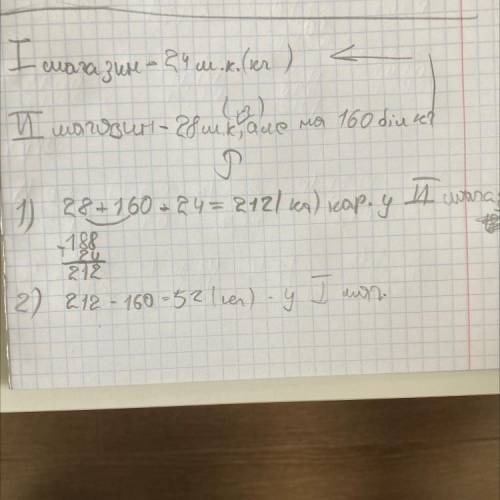 I магазин - 24 м.к. (кг)
II магазин - 28 м.к, (кг) але на 160 більк?
1) 28 + 160 + 24 = 212 (кг) кар. у II мага
+188
24
212
2) 212 - 160 = 52 (кг) - у I маг.